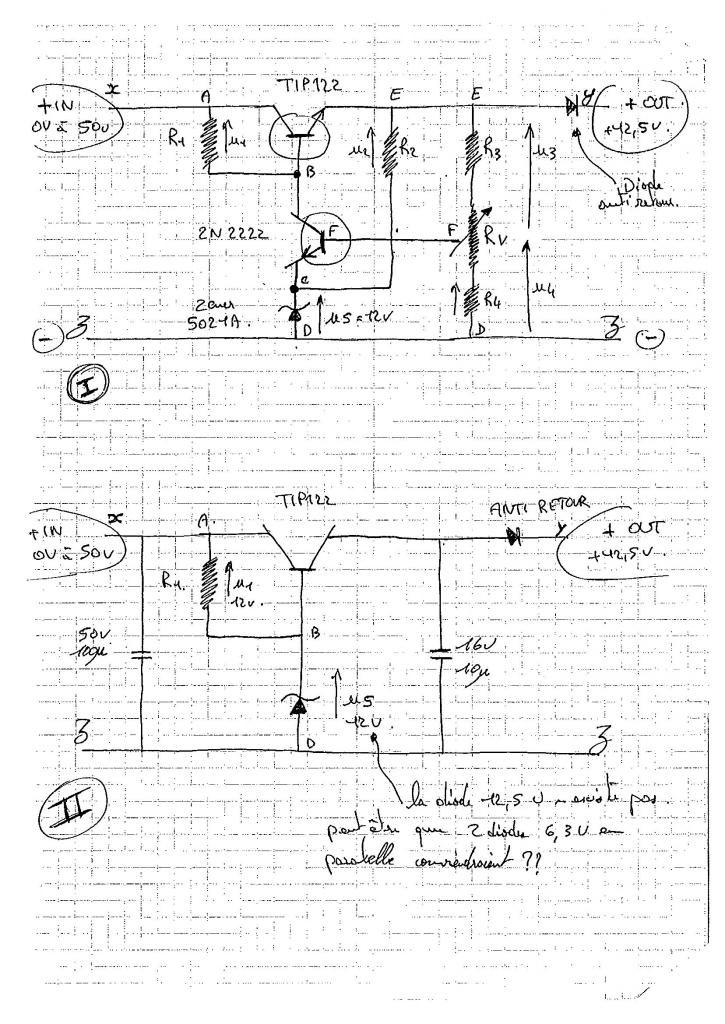 TIP122
x A E E y
+IN
0V à 50V
+ OUT
+12,5V.
R1 u1 u2 R2 R3 u3
B
Diode
anti retour.
2N2222 F F RV
C
Zener
5021A.
u5 = 12V
R4 u4
D D
(-) 3 3 (-)
I
TIP122
ANTI RETOUR
x A. y
+IN
0V à 50V
+ OUT
+12,5V.
R1. u1
12V.
B
50V
100µ
16V
10µ
u5
12V.
3 D 3
II
la diode 12,5 V n'existe pas.
peut être que 2 diodes 6,3V en
parallelle conviendraient ??